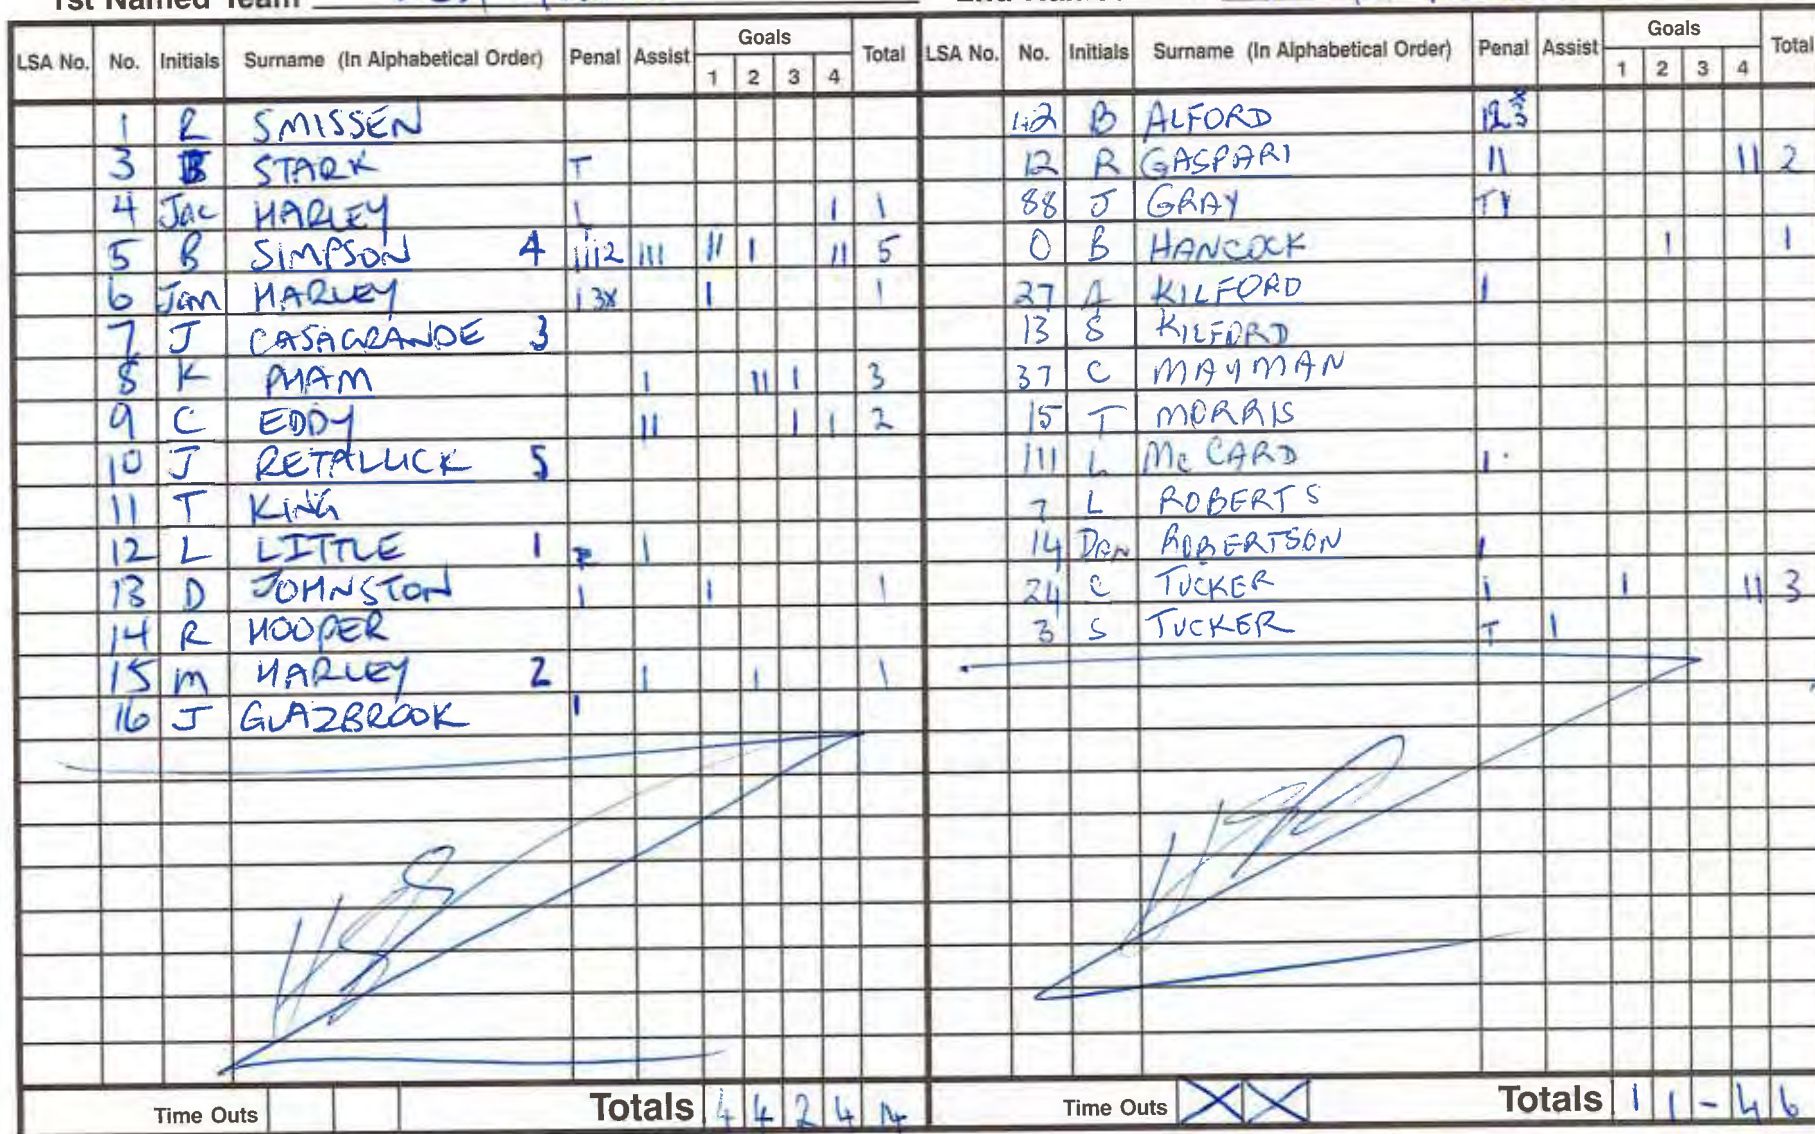 1st Named Team
LSA No. No. Initials Surname (In Alphabetical Order) Penal Assist Goals 1 2 3 4 Total
1 R SMISSEN
3 B STARK T
4 Jac HARLEY 1 1 1
5 B SIMPSON 4 1112 111 11 1 11 5
6 Jam HARLEY 1 3X 1 1
7 J CASAGRANDE 3
8 K PHAM 1 11 1 3
9 C EDDY 11 1 1 2
10 J RETALLICK 5
11 T KING
12 L LITTLE 1 1
13 D JOHNSTON 1 1 1
14 R HOOPER
15 M HARLEY 2 1 1 1
16 J GLAZBROOK 1
Time Outs Totals 4 4 2 4 14
LSA No. No. Initials Surname (In Alphabetical Order) Penal Assist Goals 1 2 3 4 Total
42 B ALFORD 123 x
12 R GASPARI 11 11 2
88 J GRAY T1
0 B HANCOCK 1 1
27 A KILFORD 1
13 S KILFORD
37 C MAYMAN
15 T MORRIS
111 L McCARD 1
7 L ROBERTS
14 Dan ROBERTSON 1
24 C TUCKER 1 1 11 3
3 S TUCKER T 1
Time Outs X X Totals 1 1 - 4 6